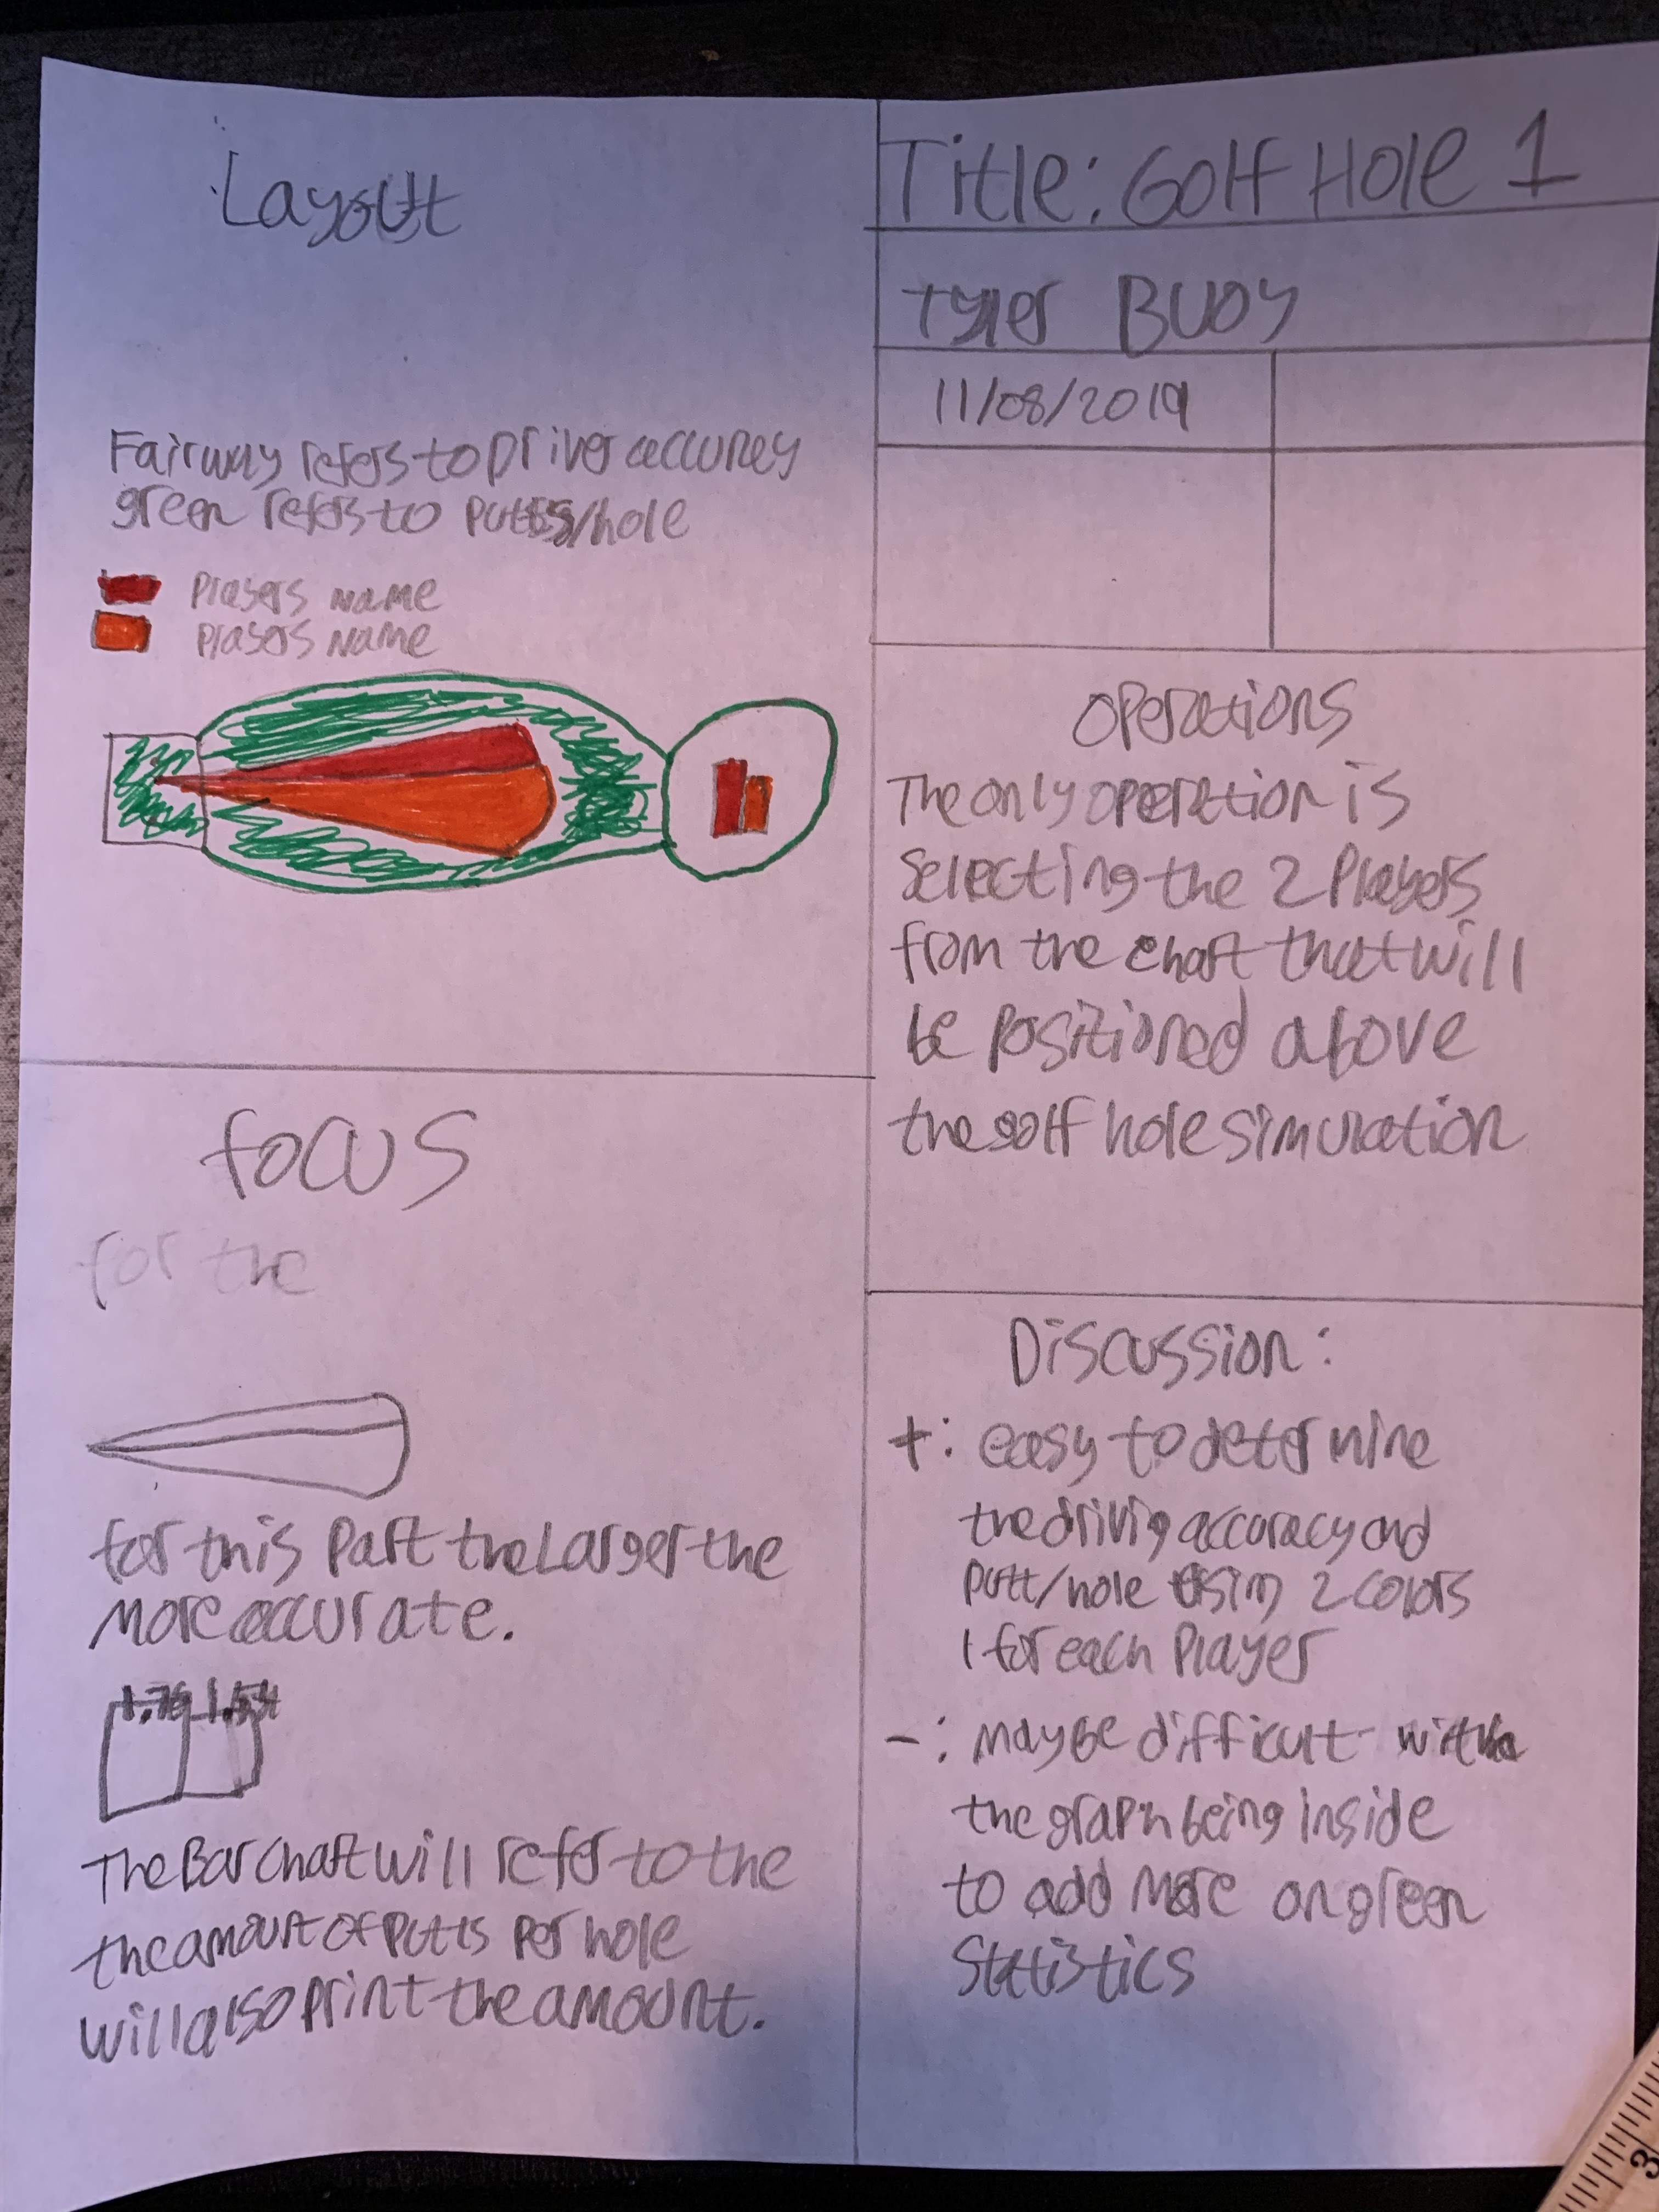 Layout
Fairway refers to Driver accuracy
green refers to Putts/hole
Players Name
Players Name
Focus
for the
for this Part the Larger the
more accurate.
1.76 1.54
The Bar Chart will refer to the
the amount of Putts Per hole
will also print the amount.
Title: Golf Hole 1
Tyler Buoy
11/08/2019
Operations
The only operation is
Selecting the 2 Players
from the chart that will
be Positioned above
the golf hole simulation
Discussion:
+: easy to determine
the driving accuracy and
Putt/hole using 2 colors
1 for each Player
-: May be difficult with
the graph being inside
to add more on green
Statistics
3